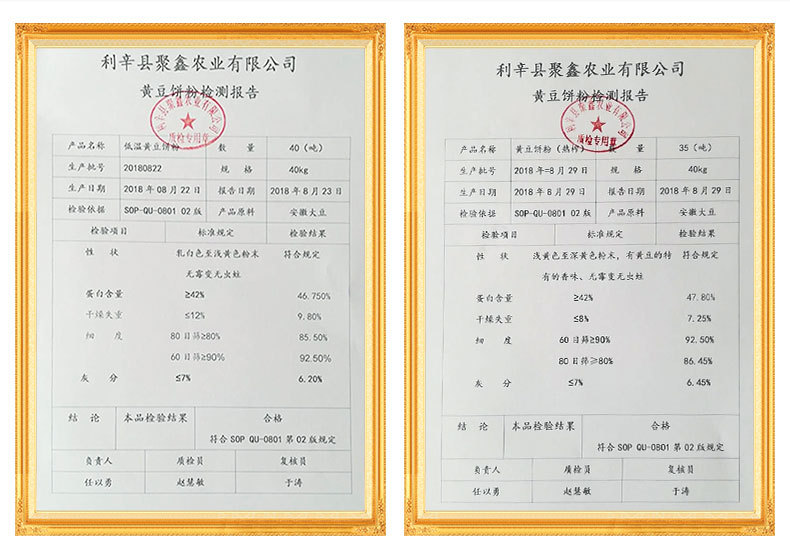 利辛县聚鑫农业有限公司
黄豆饼粉检测报告
利辛县聚鑫农业有限公司
质检专用章
产品名称 低温黄豆饼粉 数 量 40（吨）
生产批号 20180822 规 格 40kg
生产日期 2018年08月22日 报告日期 2018年8月23日
检验依据 SOP-QU-0801 02版 产品原料 安徽大豆
检验项目 标准规定 检验结果
性 状 乳白色至浅黄色粉末 符合规定
无霉变无虫蛀
蛋白含量 ≥42% 46.750%
干燥失重 ≤12% 9.80%
细 度 80目筛≥80% 85.50%
60目筛≥90% 92.50%
灰 分 ≤7% 6.20%
结 论 本品检验结果 合格
符合SOP QU-0801第02版规定
负责人 质检员 复核员
任以勇 赵慧敏 于涛
利辛县聚鑫农业有限公司
黄豆饼粉检测报告
利辛县聚鑫农业有限公司
质检专用章
产品名称 黄豆饼粉（热榨） 数 量 35（吨）
生产批号 2018年=8月29日 规 格 40kg
生产日期 2018年8月29日 报告日期 2018年8月29日
检验依据 SOP-QU-0801 02版 产品原料 安徽大豆
检验项目 标准规定 检验结果
性 状 浅黄色至深黄色粉末，有黄豆的特 符合规定
有的香味、无霉变无虫蛀
蛋白含量 ≥42% 47.80%
干燥失重 ≤8% 7.25%
细 度 60目筛≥90% 92.50%
80目筛≥80% 86.45%
灰 分 ≤7% 6.45%
结 论 本品检验结果 合格
符合SOP QU-0801第02版规定
负责人 质检员 复核员
任以勇 赵慧敏 于涛